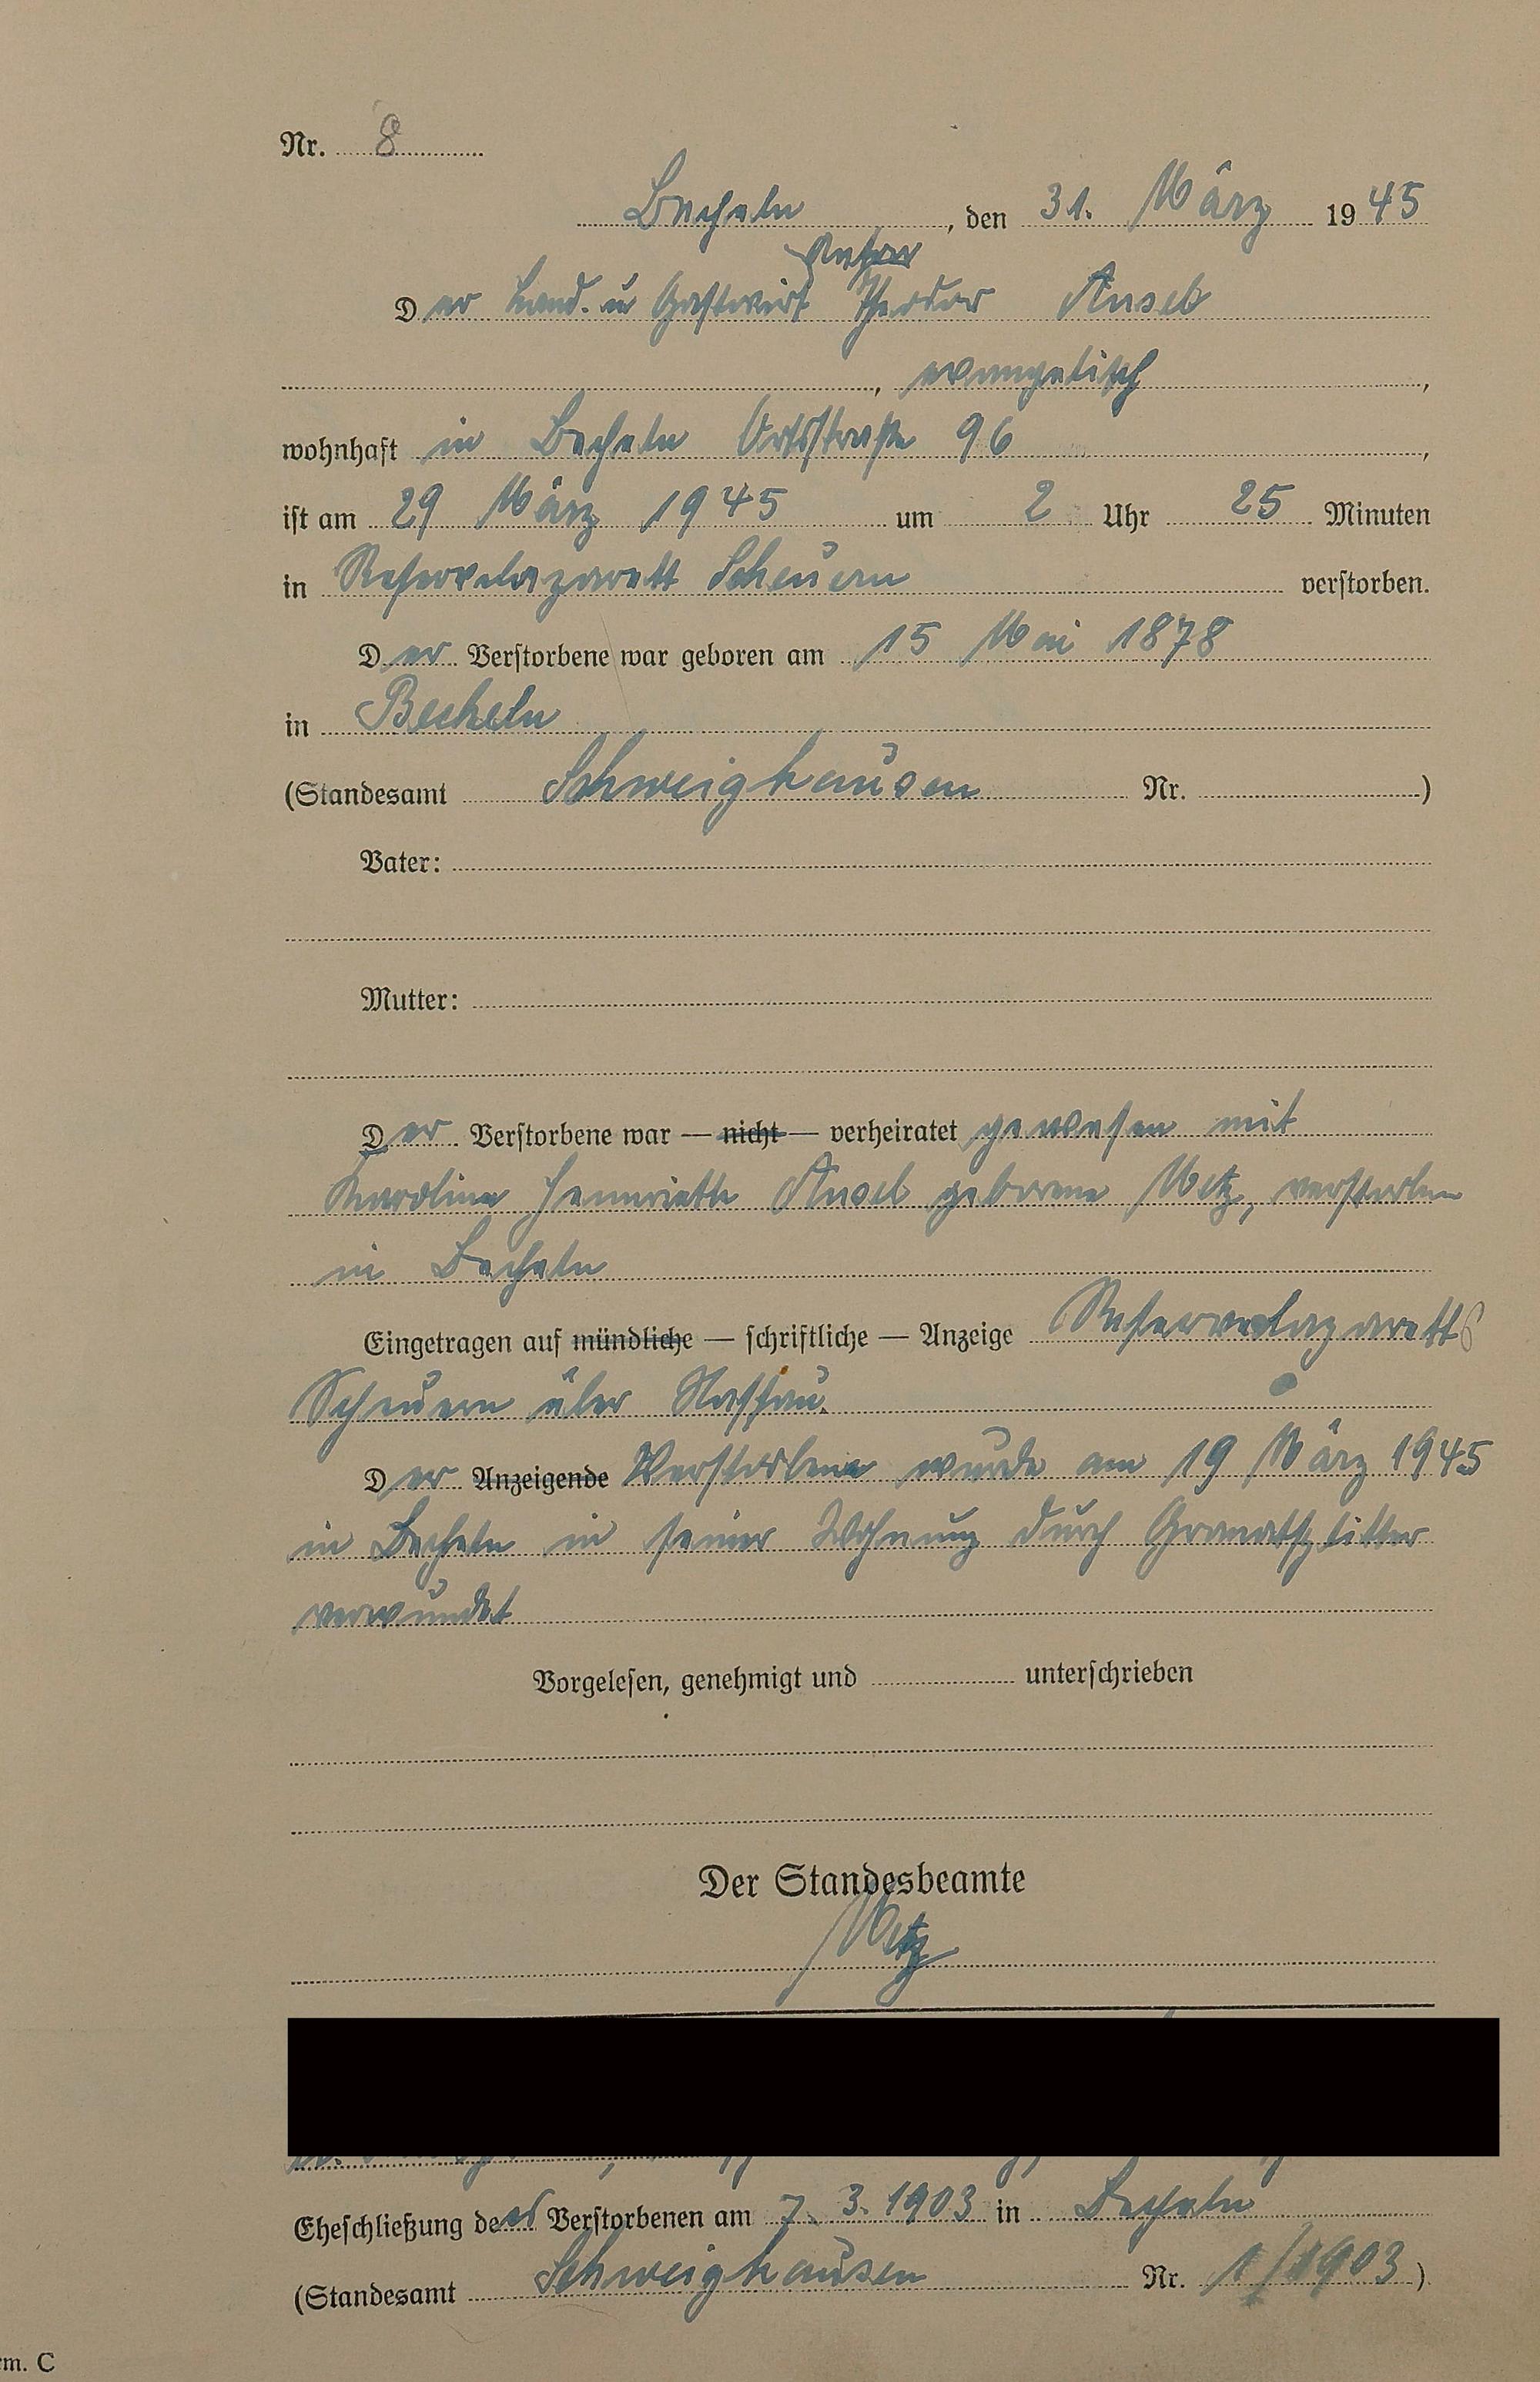 Nr. 8
Becheln, den 31. März 1945
Der Land- u Gastwirt Theodor Ansel
, evangelisch,
wohnhaft in Becheln Ortsstraße 96,
ist am 29 März 1945 um 2 Uhr 25 Minuten
in Reservelazarett Scheuern verstorben.
Der Verstorbene war geboren am 15 Mai 1878
in Becheln
(Standesamt Schweighausen Nr. )
Vater:
Mutter:
Der Verstorbene war — nicht — verheiratet gewesen mit
Karoline Henriette Ansel geborene Metz, verstorben
in Becheln
Eingetragen auf mündliche — schriftliche — Anzeige Reservelazaretts
Scheuern über Nassau.
Der Anzeigende Verstorbene wurde am 19 März 1945
in Becheln in seiner Wohnung durch Granatsplitter
verwundet
Vorgelesen, genehmigt und unterschrieben
Der Standesbeamte
Metz
Eheschließung des Verstorbenen am 7. 3. 1903 in Becheln
(Standesamt Schweighausen Nr. 1/1903)
rm. C